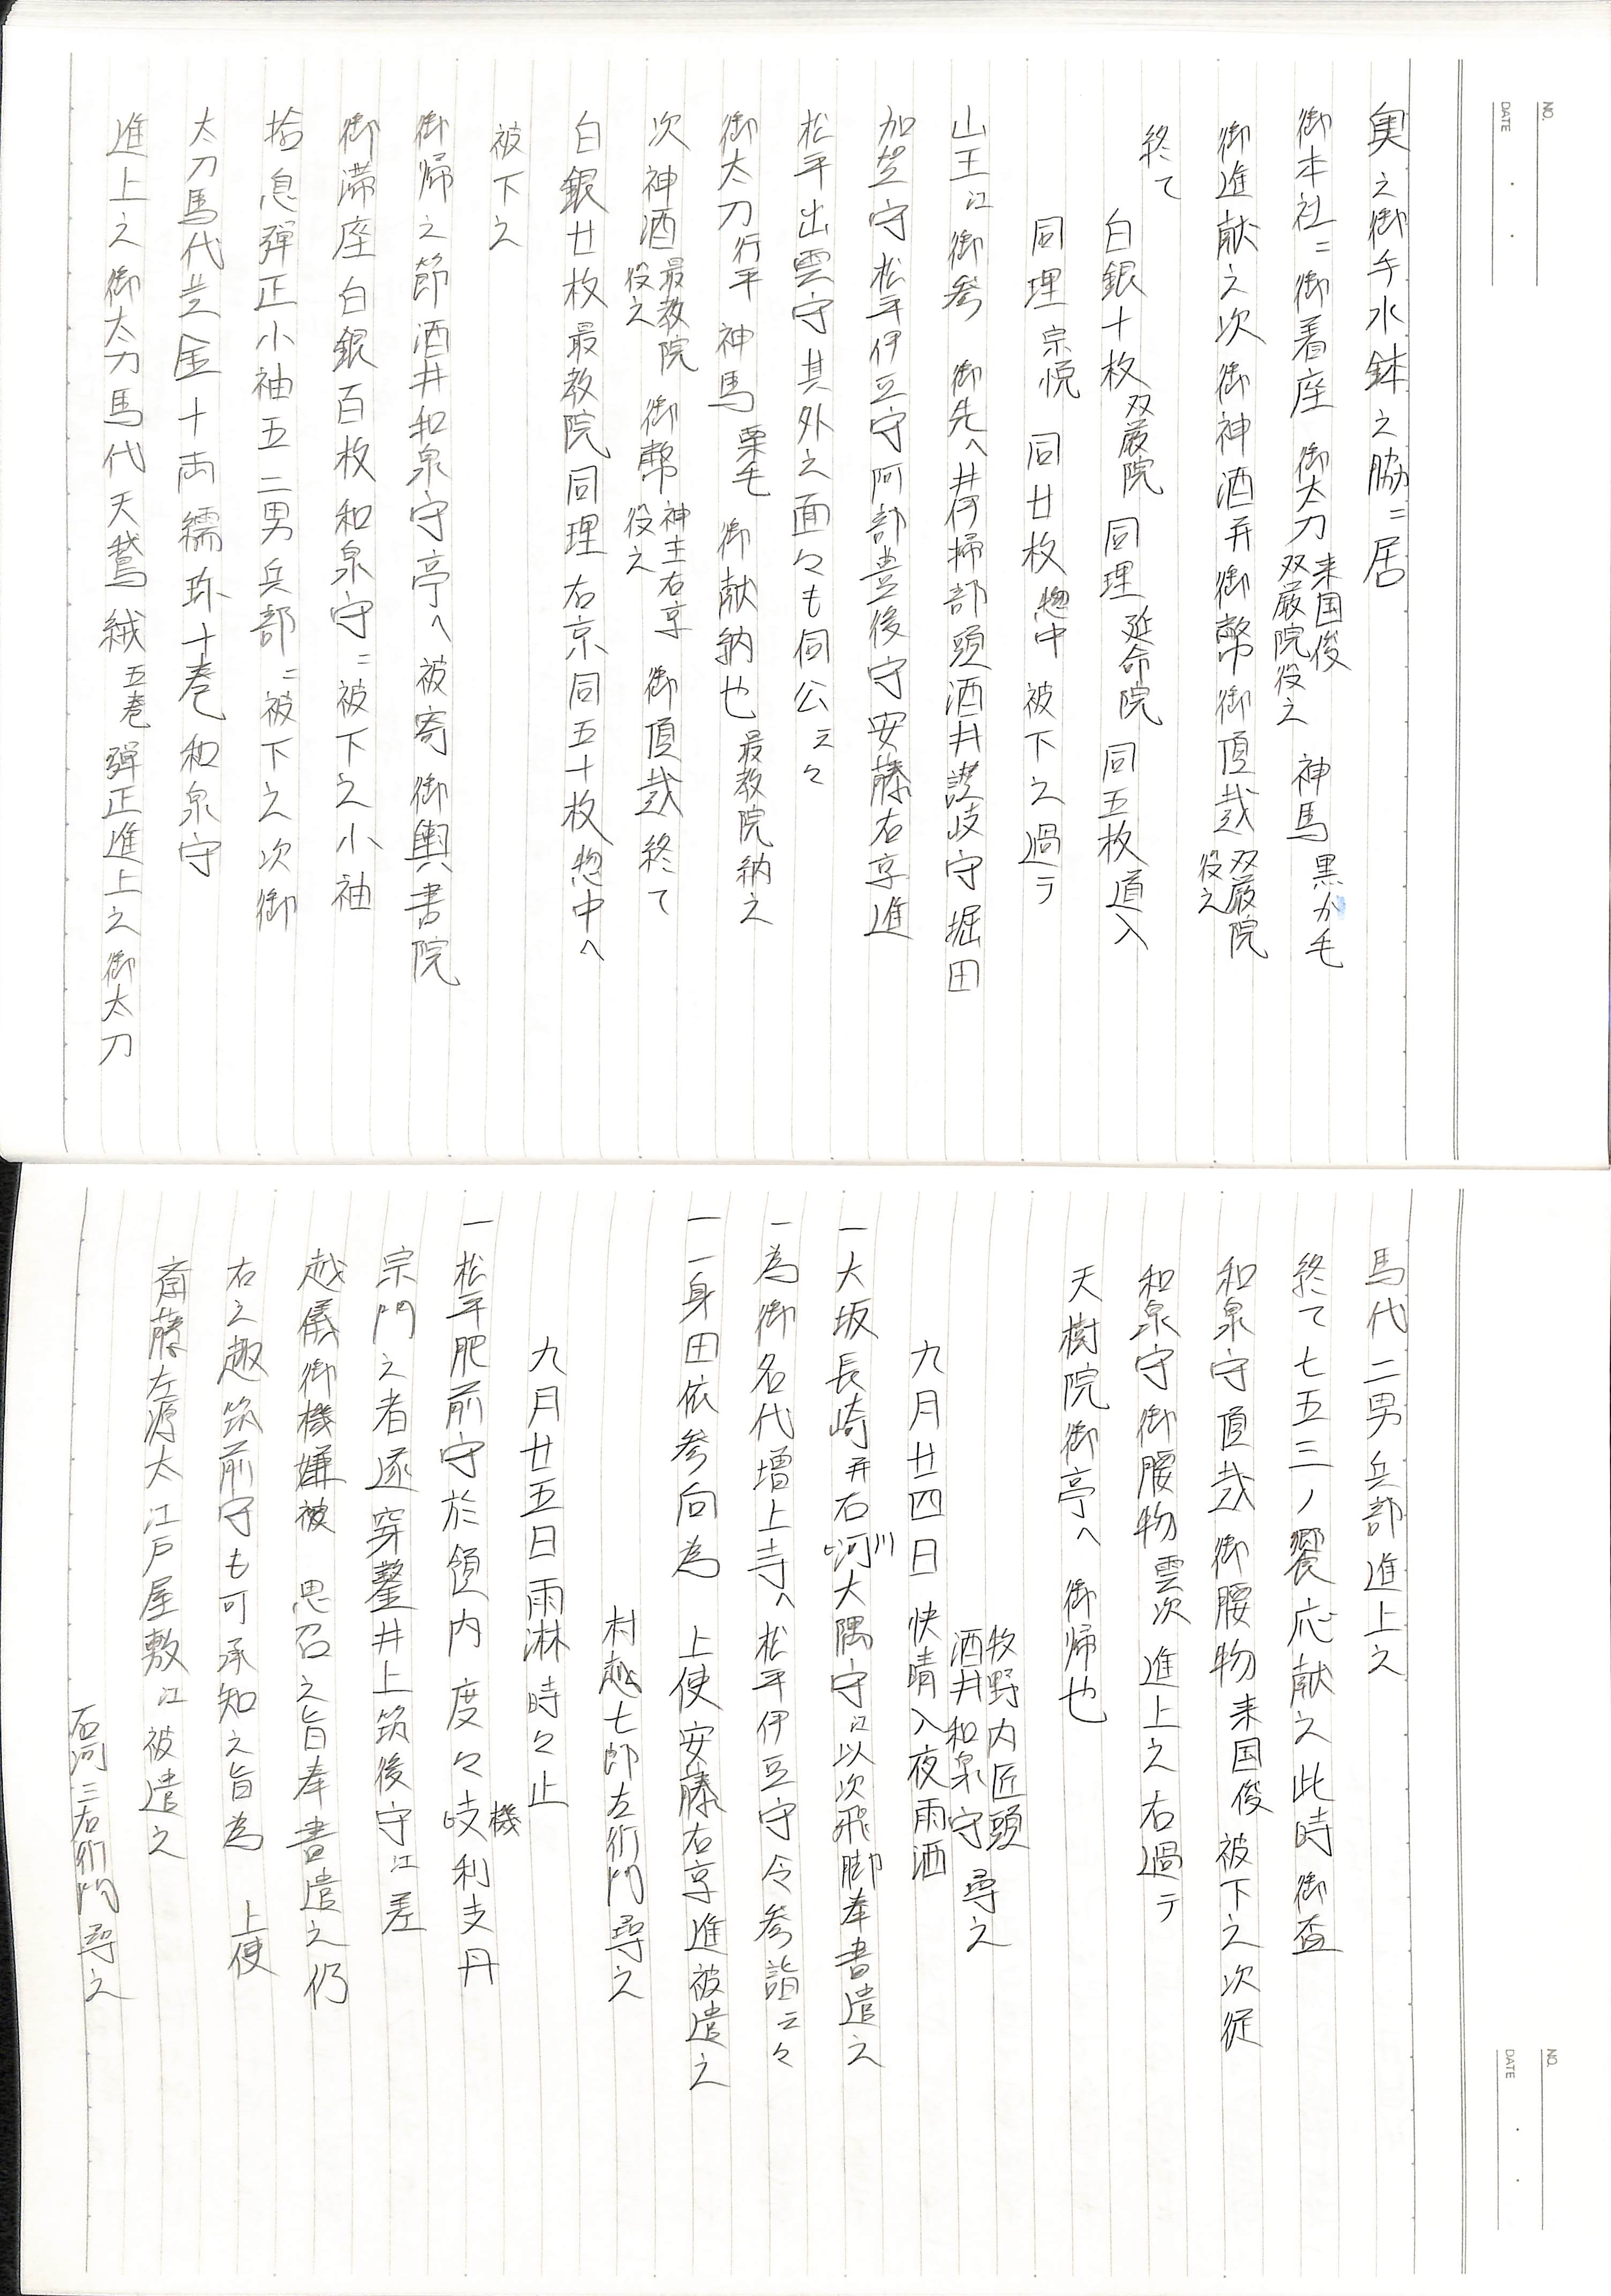 NO.
DATE
奥之御手水鉢之脇ニ居
御本社ニ御着座 御太刀 来国俊 双厳院役之 神馬 黒かモ
御進献之次御神酒并御幣御頂戴 双厳院 役之
終て
白銀十枚 双厳院 同理 延命院 同五枚 道入
同理 宗悦 同廿枚 惣中 被下之過テ
山王江御参 御先へ井伊掃部頭酒井讃岐守堀田
加賀守松平伊豆守阿部豊後守安藤右京進
松平出雲守其外之面々も伺公云々
御太刀 行平 神馬 栗毛 御献納也 最教院納之
次神酒 最教院 役之 御幣 神主右京 役之 御頂戴終て
白銀廿枚最教院同理右京同五十枚惣中へ
被下之
御帰之節酒井和泉守亭へ被寄御輿書院
御滞座白銀百枚和泉守ニ被下之小袖
拾息弾正小袖五二男兵部ニ被下之次御
太刀馬代黄金十両繻珍十巻和泉守
進上之御太刀馬代天鵞絨 五巻 弾正進上之御太刀
NO.
DATE
馬代二男兵部進上之
終て七五三ノ饗応献之此時御盃
和泉守頂戴御腰物 来国俊 被下之次従
和泉守御腰物 雲次 進上之右過テ
天樹院御亭へ御帰也
牧野内匠頭
酒井和泉守 尋之
九月廿四日 快晴入夜雨洒
一大坂長崎并石河 川 大隅守江以次飛脚奉書遣之
一為御名代増上寺へ松平伊豆守令参詣云々
一一身田依参向為 上使安藤右京進被遣之
村越七郎左衛門尋之
九月廿五日雨淋時々止
一松平肥前守於領内度々岐 機 利支丹
宗門之者遂穿鑿井上筑後守江差
越儀御機嫌被 思召之旨奉書遣之仍
右之趣筑前守も可承知之旨為 上使
斎藤左源太江戸屋敷江被遣之
石河三右衛門尋之